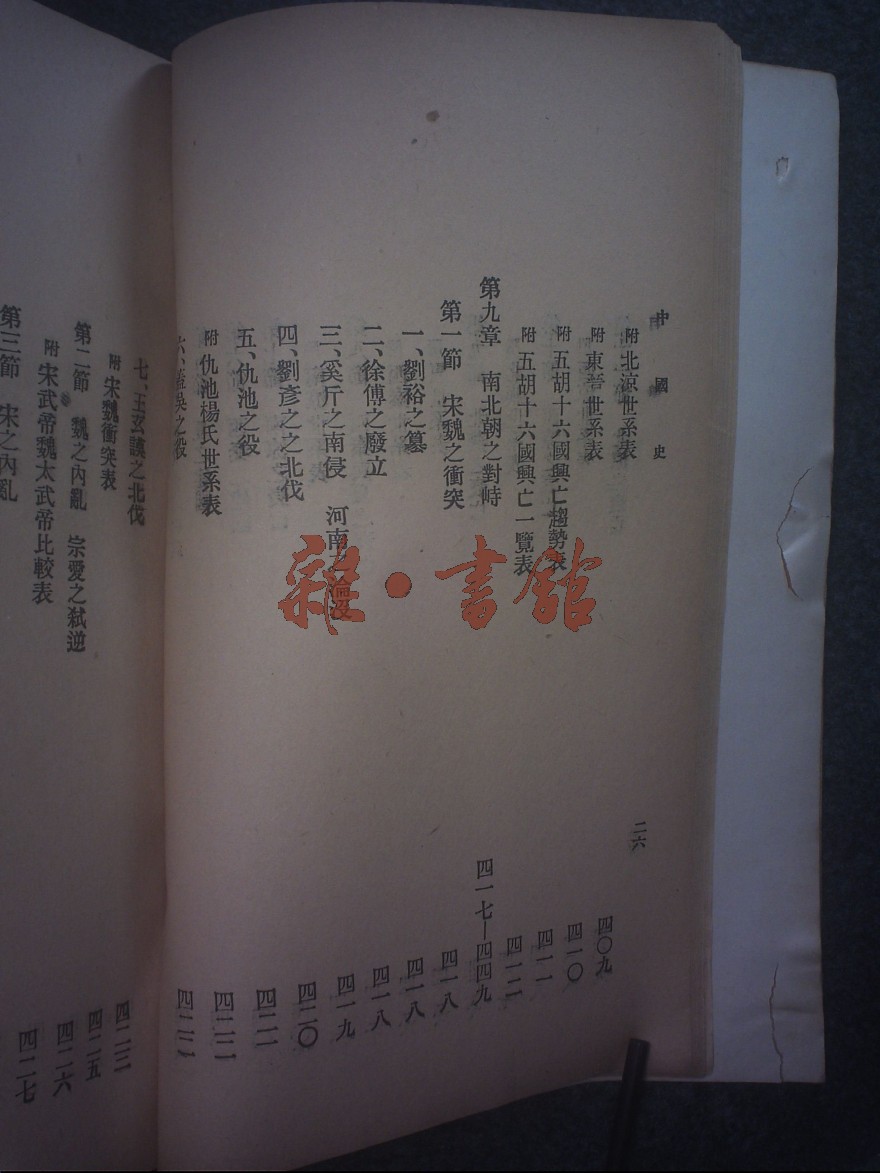 中國史
二六
附 北涼世系表 四〇九
附 東晉世系表 四一〇
附 五胡十六國興亡趨勢表 四一一
附 五胡十六國興亡一覽表 四一二
第九章 南北朝之對峙 四一七—四四九
第一節 宋魏之衝突 四一八
一、劉裕之篡 四一八
二、徐傅之廢立 四一八
三、奚斤之南侵 河南之淪沒 四一九
四、劉彥之之北伐 四二〇
五、仇池之役 四二一
附 仇池楊氏世系表 四二二
六、蓋吳之役 四二二
七、王玄謨之北伐
附 宋魏衝突表 四二三
第二節 魏之內亂 宗愛之弒逆 四二五
附 宋武帝魏太武帝比較表 四二六
第三節 宋之內亂 四二七
雜·書館